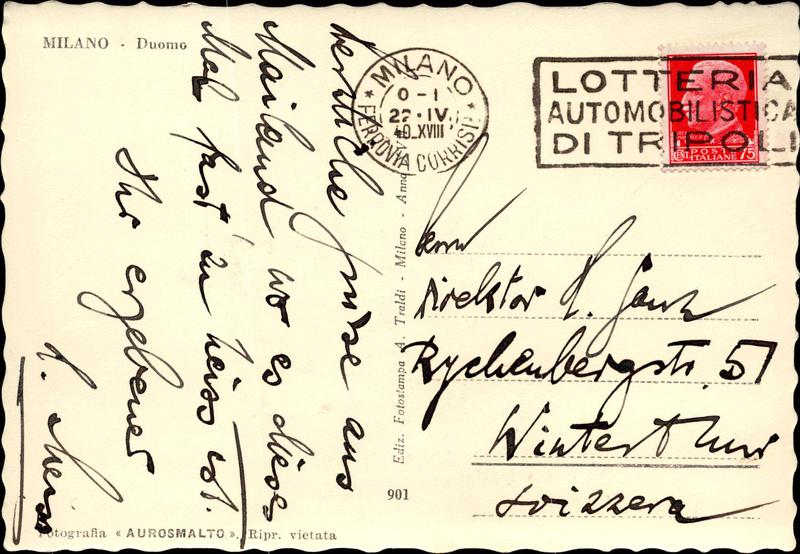 MILANO - Duomo
Herzliche Grüsse aus
Mailand wo es dieses
Mal fast zu heiss ist.
Ihr ergebener
MILANO
0-1
22·IV
40.XVIII
FERROVIA CORRISP
LOTTERIA
AUTOMOBILISTICA
DI TRIPOLI
POSTE
ITALIANE
CENT 75
Herrn
Direktor H.
Rychenbergstr. 51
Winterthur
Svizzera
Ediz. Fotostampa A. Traldi - Milano - Anno
901
Fotografia « AUROSMALTO ». Ripr. vietata